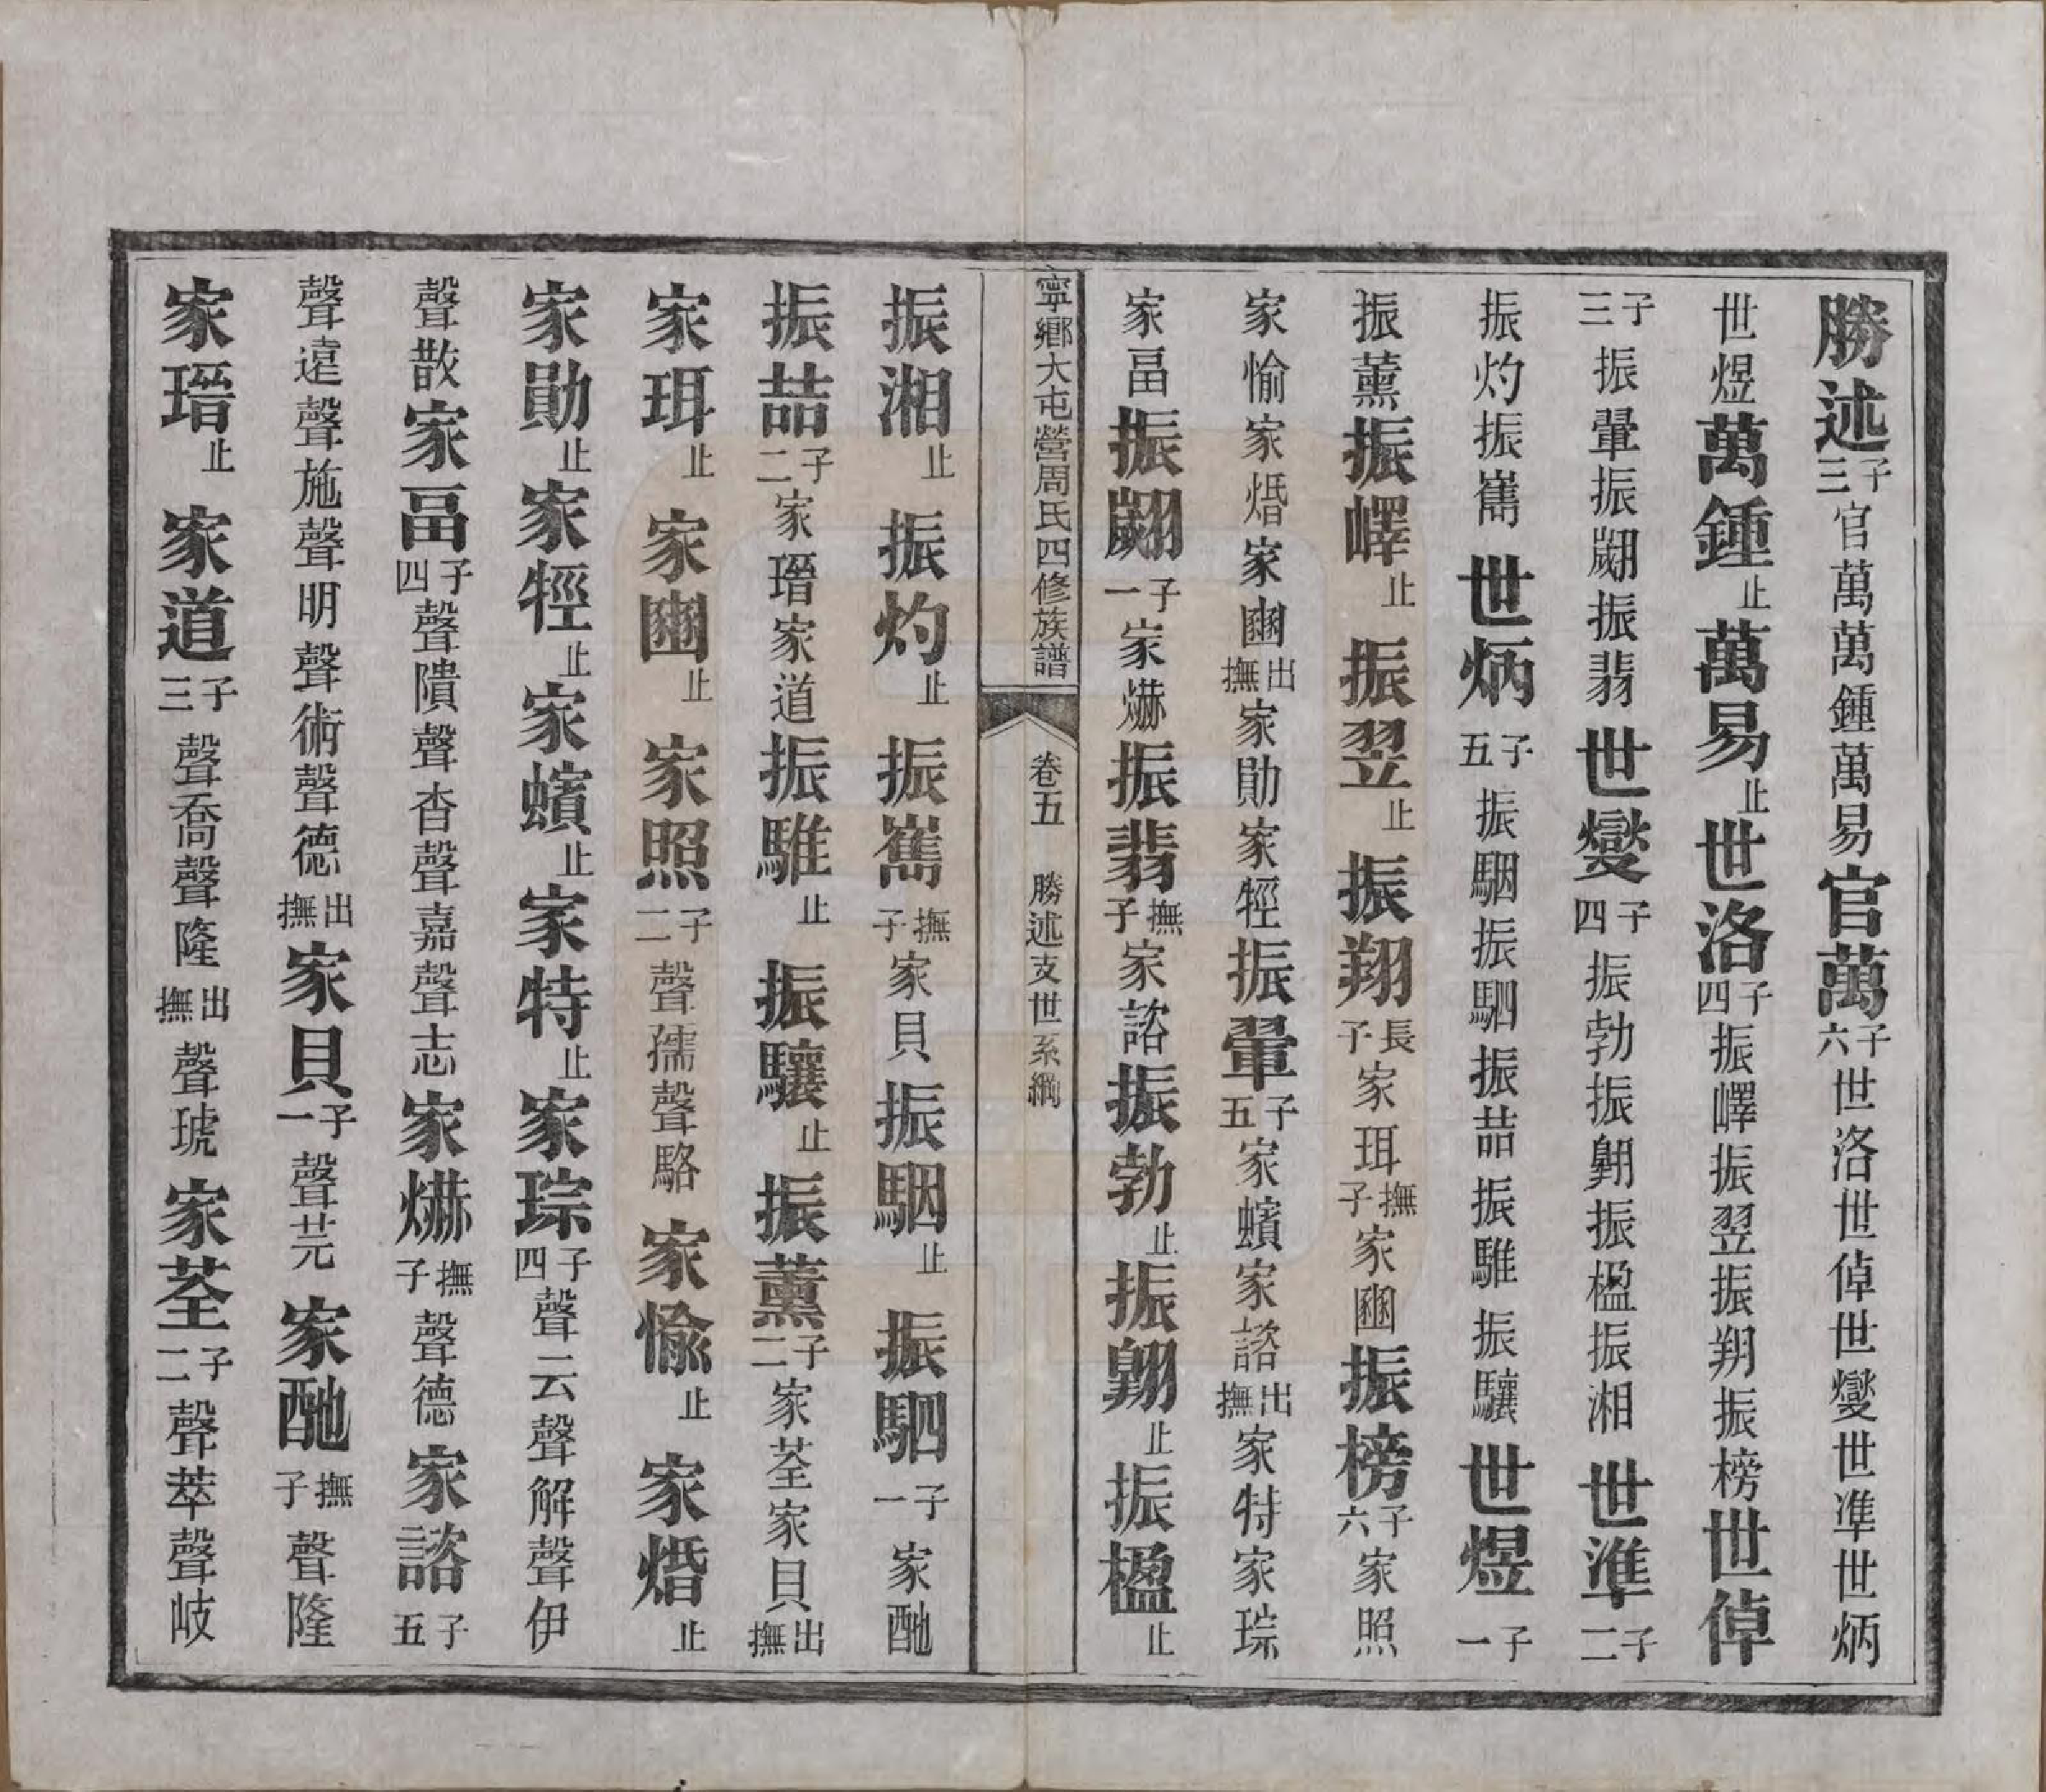 勝述子三官萬萬鍾萬易官萬子六世洛世倬世燮世準世炳
世煜萬鍾止萬易止世洛子四振嶧振翌振翔振榜世倬
子三振翬振翽振翡世燮子四振勃振翺振楹振湘世準子二
振灼振嶲世炳子五振駰振駟振喆振騅振驤世煜子一
振薰振嶧止振翌止振翔長子家珥撫子家豳振榜子六家照
家愉家焻家豳出撫家勛家牼振翬子五家蠙家諮出撫家特家琮
家畐振翽子一家爀振翡撫子家諮振勃止振翺止振楹止
寧鄉大屯營周氏四修族譜
卷五 勝述支世系綱
振湘止振灼止振嶲撫子家貝振駰止振駟子一家酏
振喆子二家瑨家道振騅止振驤止振薰子二家荃家貝出撫
家珥止家豳止家照子二聲孺聲駱家愉止家焻止
家勛止家牼止家蠙止家特止家琮子四聲云聲解聲伊
聲散家畐子四聲隤聲杳聲嘉聲志家爀撫子聲德家諮子五
聲遠聲施聲明聲術聲德出撫家貝子一聲芫家酏撫子聲隆
家瑨止家道子三聲喬聲隆出撫聲琥家荃子二聲萃聲岐